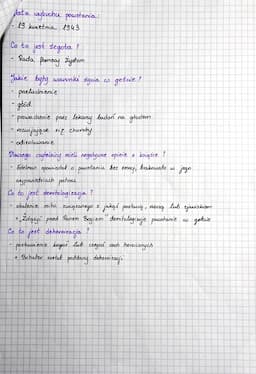 Data wybuchu powstania:
- 19 kwietnia 1943
Co to jest Żegota?
- Rada Pomocy Żydom
Jakie były warunki życia w getcie?
- przeludnienie
- głód
- prowadzenie przez lekarzy badań na głodem
- szerzące się choroby
- odizolowanie
Dlaczego czytelnicy mieli negatywne opinie o książce?
- Edelman opowiadał o powstaniu bez emocji, brakowało w jego
wypowiedziach patosu
Co to jest demitologizacja?
- obalenie mitu związanego z jakąś postacią, rzeczą lub zjawiskiem
• "Zdążyć przed Panem Bogiem" demitologizuje powstanie w getcie
Co to jest deheroizacja?
- pozbawienie kogoś lub czegoś cech heroicznych
• Bohater został poddany deheroizacji